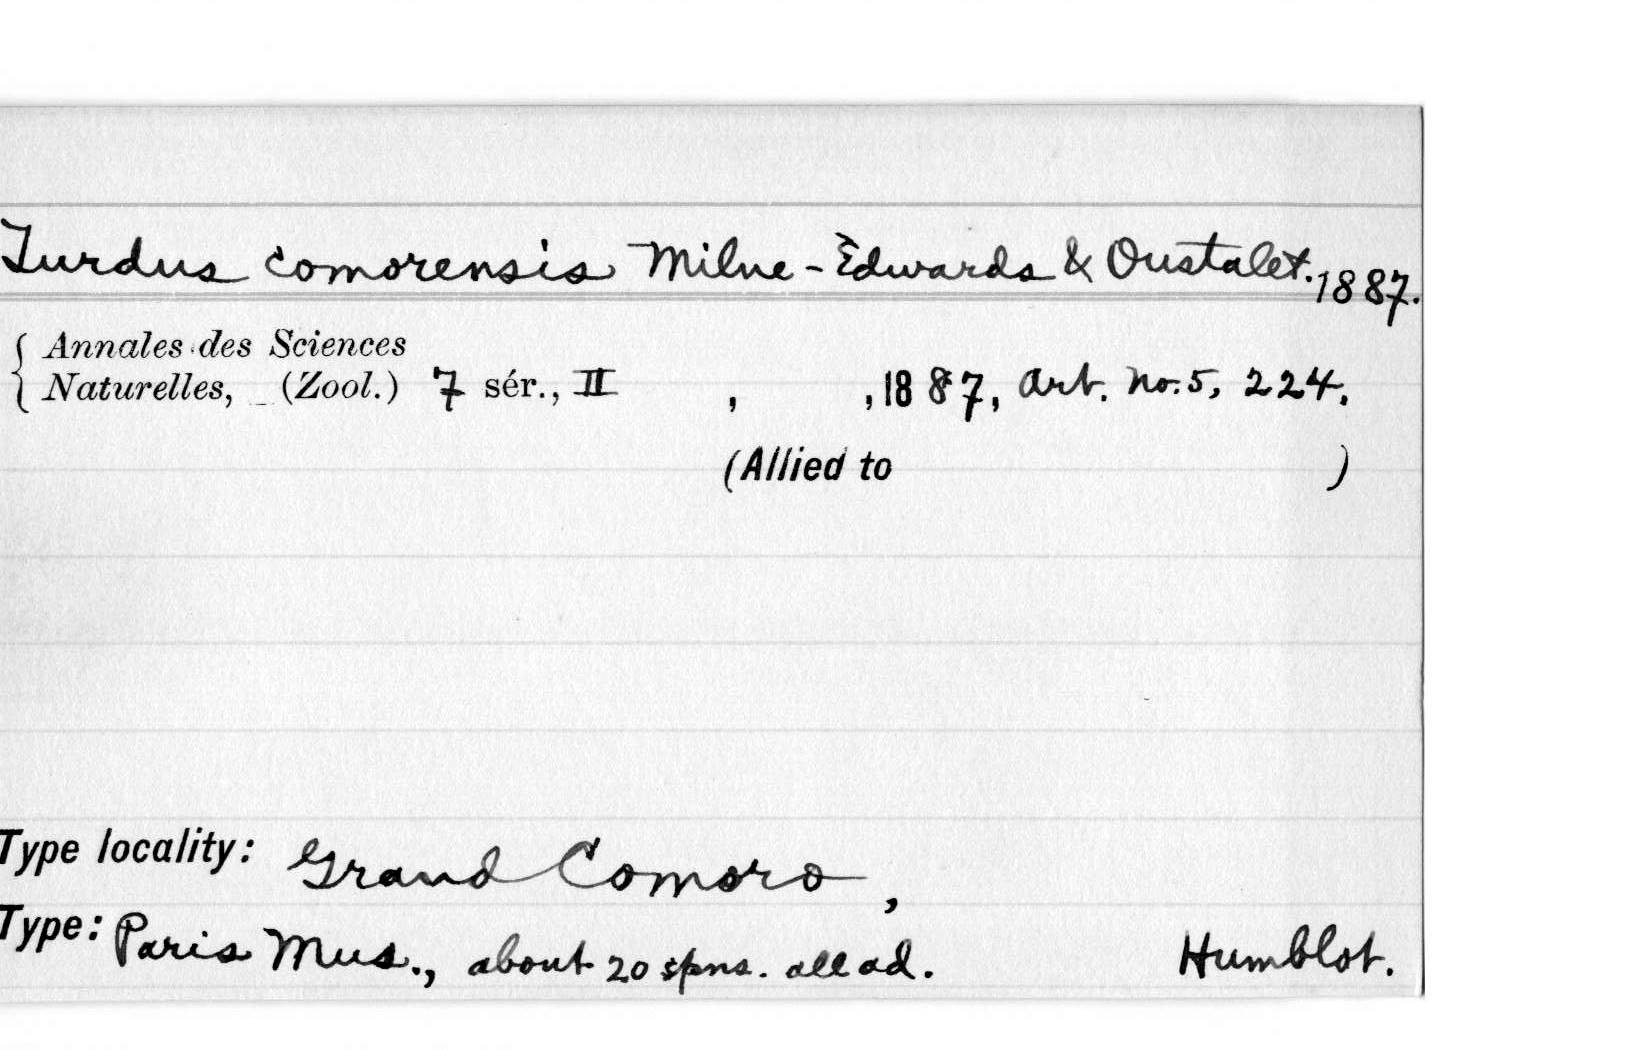 Turdus comorensis Milne-Èdwards & Oustalet. 1887.
{ Annales des Sciences
Naturelles, (Zool.) 7 sér., II , , 1887, Art. No. 5, 224.
(Allied to )
Type locality: Grand Comoro,
Type: Paris Mus., about 20 spns. all ad. Humblot.